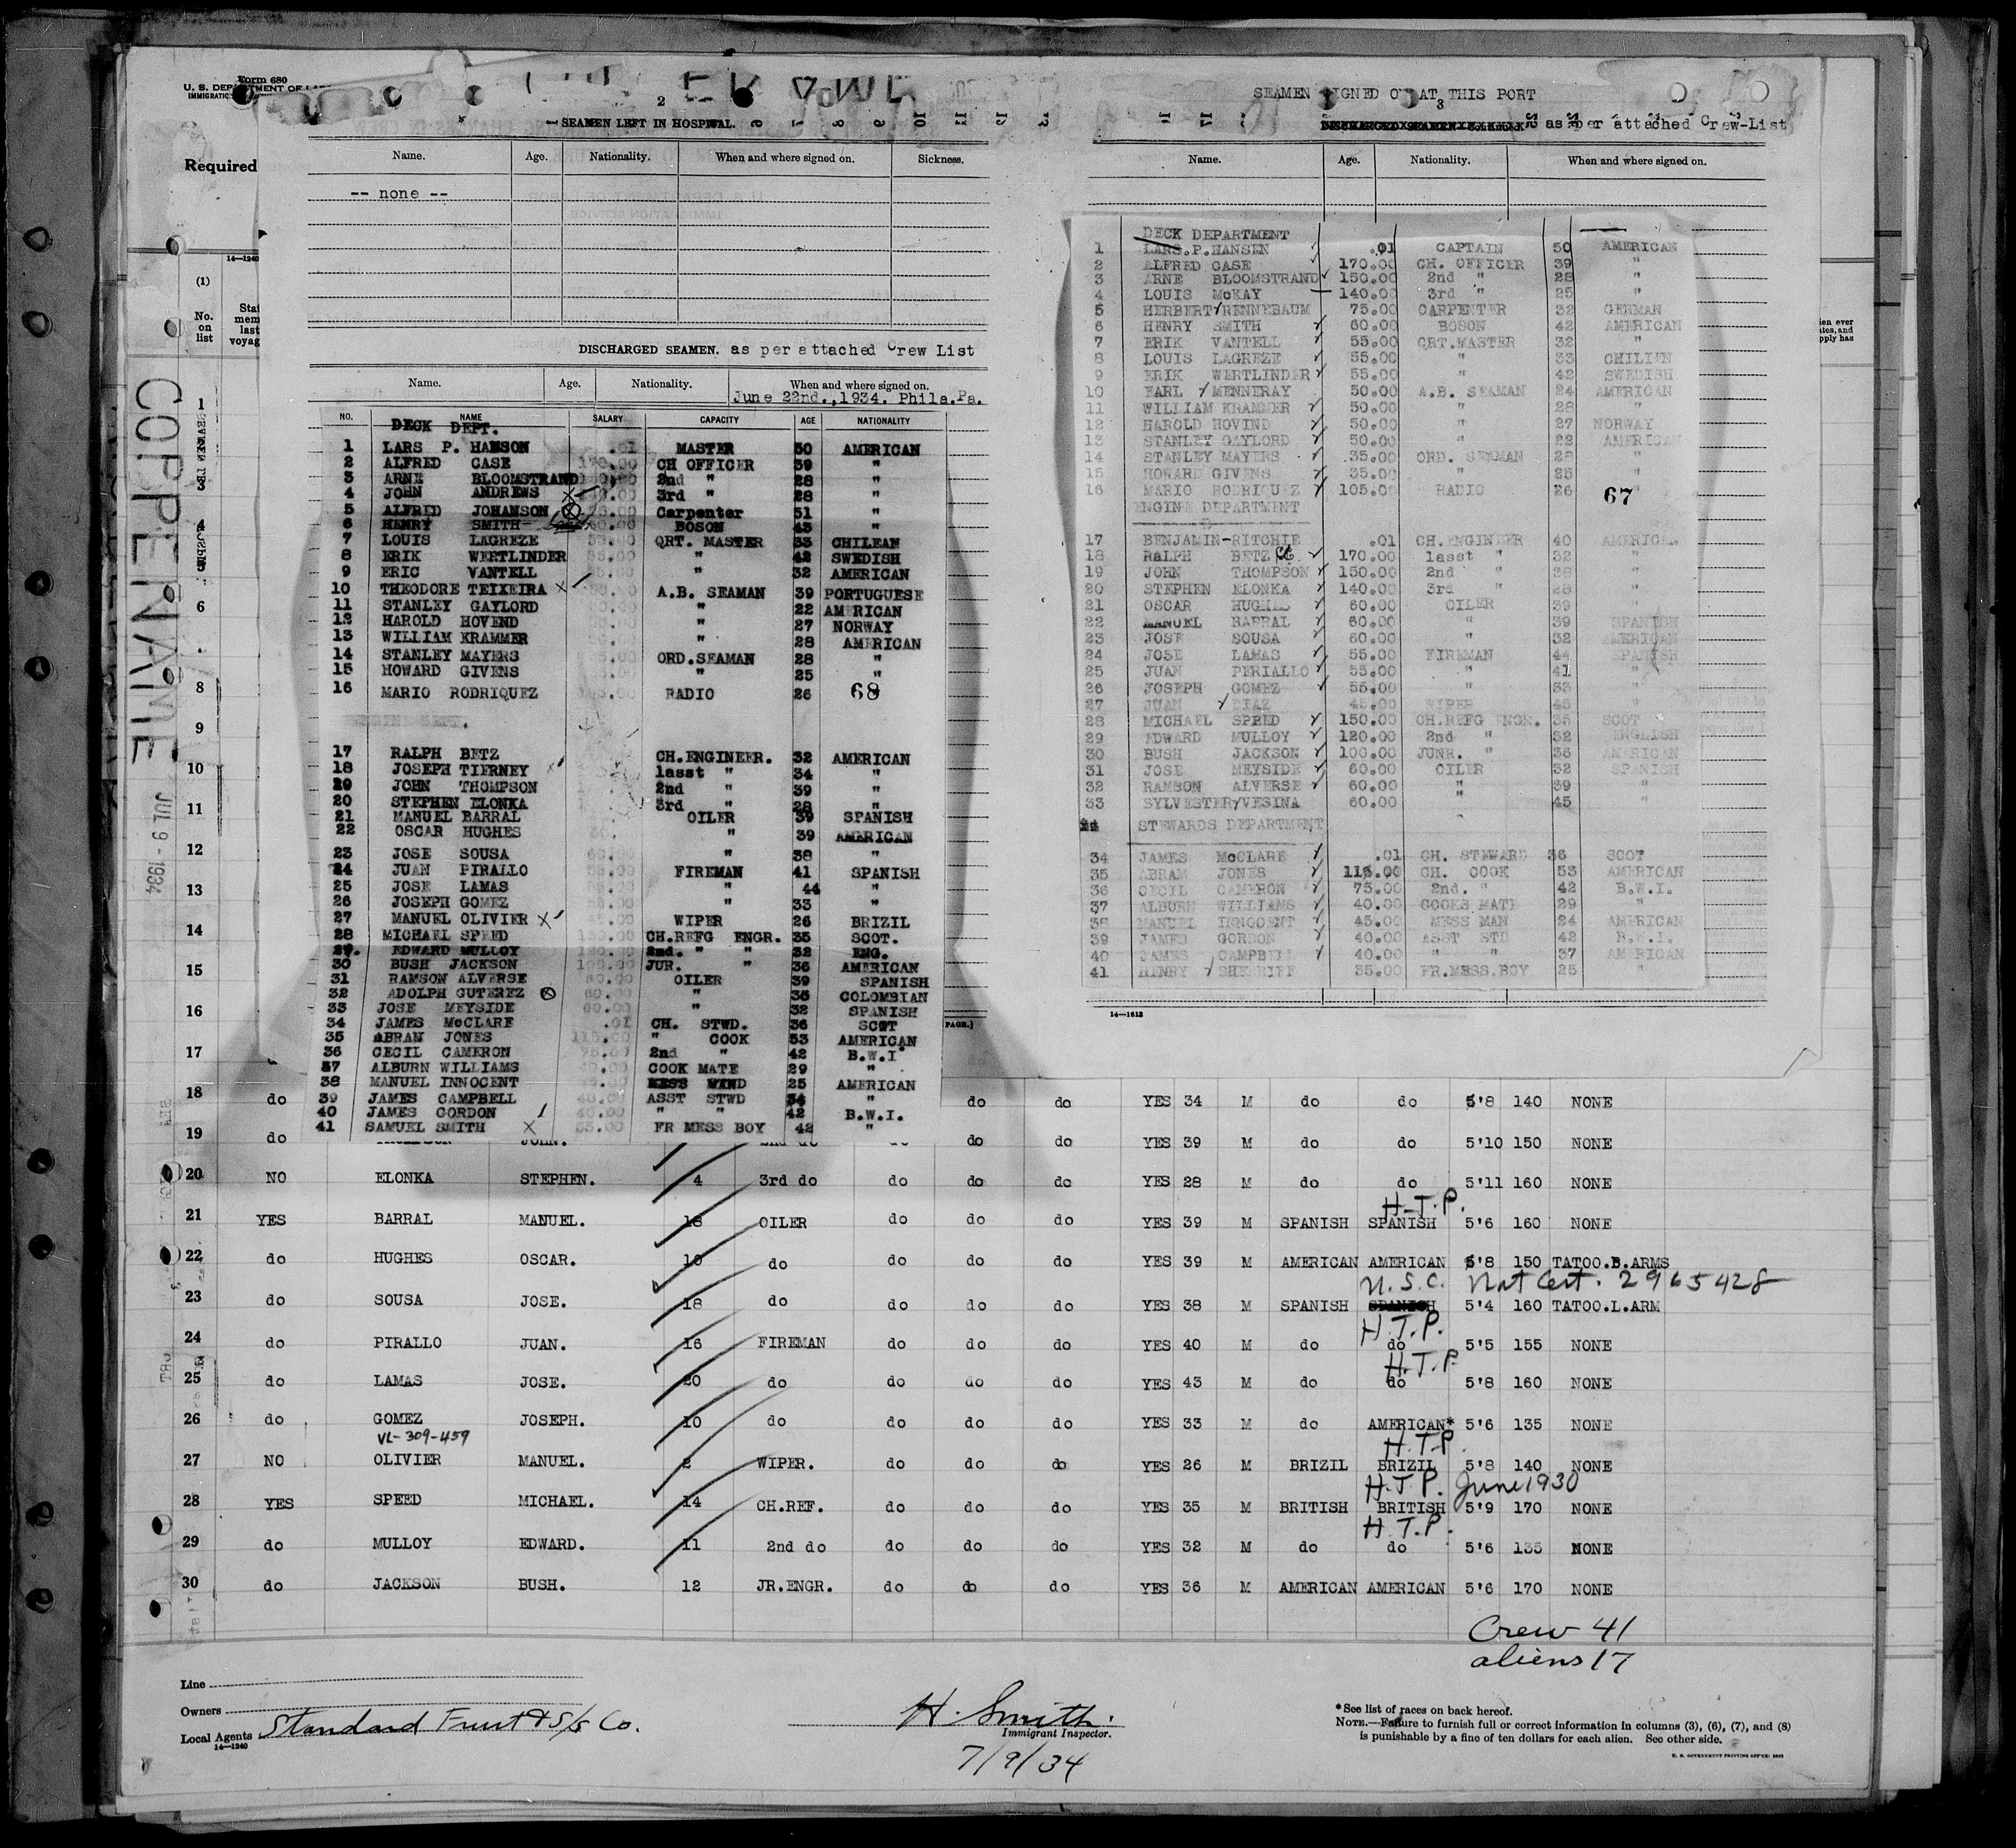 Form 680
U. S. DEPARTMENT OF
IMMIGRATION
Required
14—1240
(1)
No.
on
list
COPPENAME
JUL 9 - 1934
2
SEAMEN LEFT IN HOSPITAL.
Name. Age. Nationality. When and where signed on. Sickness.
-- none --
DISCHARGED SEAMEN. as per attached Crew List
Name. Age. Nationality. When and where signed on.
June 22nd.,1934. Phila.Pa.
NO. NAME SALARY CAPACITY AGE NATIONALITY
DECK DEPT.
1 LARS P. HANSON .01 MASTER 50 AMERICAN
2 ALFRED CASE 170.00 CH OFFICER 39 "
3 ARNE BLOOMSTRAND 2nd " 28 "
4 JOHN ANDREWS X 3rd " 28 "
5 ALFRED JOHANSON Carpenter 51 "
6 HENRY SMITH BOSON 43 "
7 LOUIS LAGREZE QRT. MASTER 33 CHILEAN
8 ERIK WERTLINDER " 42 SWEDISH
9 ERIC VANTELL " 32 AMERICAN
10 THEODORE TEIXEIRA X A.B. SEAMAN 39 PORTUGUESE
11 STANLEY GAYLORD " 22 AMERICAN
12 HAROLD HOVEND " 27 NORWAY
13 WILLIAM KRAMMER " 28 AMERICAN
14 STANLEY MAYERS ORD.SEAMAN 28 "
15 HOWARD GIVENS " 25 "
16 MARIO RODRIQUEZ RADIO 26 68
17 RALPH BETZ CH.ENGINEER. 32 AMERICAN
18 JOSEPH TIERNEY X lasst " 34 "
19 JOHN THOMPSON 2nd " 39 "
20 STEPHEN ELONKA 3rd " 28 "
21 MANUEL BARRAL OILER 39 SPANISH
22 OSCAR HUGHES " 39 AMERICAN
23 JOSE SOUSA 60.00 " 38 "
24 JUAN PIRALLO FIREMAN 41 SPANISH
25 JOSE LAMAS " 44 "
26 JOSEPH GOMEZ " 33 "
27 MANUEL OLIVIER X 45.00 WIPER 26 BRIZIL
28 MICHAEL SPEED 150.00 CH.REFG ENGR. 35 SCOT.
29. EDWARD MULLOY 2nd. " " 32 ENG.
30 BUSH JACKSON 100.00 JUR. " 36 AMERICAN
31 RAMSON ALVERSE 60.00 OILER 39 SPANISH
32 ADOLPH GUTEREZ 60.00 " 35 COLOMBIAN
33 JOSE MEYSIDE 60.00 " 32 SPANISH
34 JAMES McCLARE .01 CH. STWD. 36 SCOT
35 ABRAN JONES 115.00 " COOK 53 AMERICAN
36 CECIL CAMERON 75.00 2nd " 42 B.W.I
37 ALBURN WILLIAMS 40.00 COOK MATE 29 "
38 MANUEL INNOCENT 45.00 MESS 25 AMERICAN
39 JAMES CAMPBELL 40.00 ASST STWD "
40 JAMES GORDON 40.00 " " 42 B.W.I.
41 SAMUEL SMITH X 35.00 FR MESS BOY 42 "
SEAMEN SIGNED ON AT THIS PORT
3
as per attached Crew-List
Name. Age. Nationality. When and where signed on.
DECK DEPARTMENT
1 LARS.P.HANSEN .01 CAPTAIN 50 AMERICAN
2 ALFRED CASE 170.00 CH. OFFICER 39 "
3 ARNE BLOOMSTRAND 150.00 2nd " 28 "
4 LOUIS McKAY 140.00 3rd " 25 "
5 HERBERT RENNEBAUM 75.00 CARPENTER 32 GERMAN
6 HENRY SMITH 60.00 BOSON 42 AMERICAN
7 ERIK VANTELL 55.00 QRT.MASTER 32 "
8 LOUIS LAGREZE 55.00 " 33 CHILIEN
9 ERIK WERTLINDER 55.00 " 42 SWEDISH
10 EARL MENNERAY 50.00 A.B. SEAMAN 24 AMERICAN
11 WILLIAM KRAMMER 50.00 " 28 "
12 HAROLD HOVIND 50.00 " 27 NORWAY
13 STANLEY GAYLORD 50.00 " 22 AMERICAN
14 STANLEY MAYERS 35.00 ORD. SEAMAN 28 "
15 HOWARD GIVENS 35.00 " 25 "
16 MARIO RODRIQUEZ 105.00 RADIO 26 67
ENGINE DEPARTMENT
17 BENJAMIN-RITCHIE .01 CH.ENGINEER 40 AMERICA.
18 RALPH BETZ 170.00 lasst " 32 "
19 JOHN THOMPSON 150.00 2nd " 38 "
20 STEPHEN ELONKA 140.00 3rd " 28 "
21 OSCAR HUGHES 60.00 OILER 39 "
22 MANUEL BARRAL 60.00 " 39 SPANISH
23 JOSE SOUSA 60.00 " 32 AMERICAN
24 JOSE LAMAS 55.00 FIREMAN 44 SPANISH
25 JUAN PERIALLO 55.00 " 41 "
26 JOSEPH GOMEZ 55.00 " 33 "
27 JUAN DIAZ 45.00 WIPER 45 "
28 MICHAEL SPEED 150.00 CH.REFG ENGR. 35 SCOT
29 EDWARD MULLOY 120.00 2nd " 32 ENGLISH
30 BUSH JACKSON 100.00 JUNR. " 36 AMERICAN
31 JOSE MEYSIDE 60.00 OILER 32 SPANISH
32 RAMSON ALVERSE 60.00 " 39 "
33 SYLVESTER VESINA 60.00 " 45 "
STEWARDS DEPARTMENT
34 JAMES McCLARE .01 CH. STEWARD 36 SCOT
35 ABRAM JONES 115.00 CH. COOK 53 AMERICAN
36 CECIL CAMERON 75.00 2nd. " 42 B.W.I.
37 ALBURN WILLIAMS 40.00 COOKS MATE 29 "
38 MANUEL INNOCENT 45.00 MESS MAN 24 AMERICAN
39 JAMES GORDON 40.00 ASST STD 42 B.W.I.
40 JAMES CAMPBELL 40.00 " " 37 AMERICAN
41 HENRY SHERRIFF 35.00 FR.MESS.BOY 25 "
14—1613
PAGE.)
1
4
6
8
9
10
11
12
13
14
15
16
17
18 do do do YES 34 M do do 5'8 140 NONE
19 do JOHN. do do YES 39 M do do 5'10 150 NONE
20 NO ELONKA STEPHEN. 4 3rd do do do do YES 28 M do do 5'11 160 NONE
H.T.P.
21 YES BARRAL MANUEL. 18 OILER do do do YES 39 M SPANISH SPANISH 5'6 160 NONE
22 do HUGHES OSCAR. 10 do do do do YES 39 M AMERICAN AMERICAN 5'8 150 TATOO.B.ARMS
U.S.C. Nat Cert. 2965428
23 do SOUSA JOSE. 18 do do do do YES 38 M SPANISH SPANISH 5'4 160 TATOO.L.ARM
H.T.P.
24 do PIRALLO JUAN. 16 FIREMAN do do do YES 40 M do do 5'5 155 NONE
H.T.P.
25 do LAMAS JOSE. 20 do do do do YES 43 M do do 5'8 160 NONE
26 do GOMEZ JOSEPH. 10 do do do do YES 33 M do AMERICAN* 5'6 135 NONE
VL-309-459
H.T.P.
27 NO OLIVIER MANUEL. 2 WIPER. do do do YES 26 M BRIZIL BRIZIL 5'8 140 NONE
H.T.P. June 1930
28 YES SPEED MICHAEL. 14 CH.REF. do do do YES 35 M BRITISH BRITISH 5'9 170 NONE
H.T.P.
29 do MULLOY EDWARD. 11 2nd do do do do YES 32 M do do 5'6 135 NONE
30 do JACKSON BUSH. 12 JR.ENGR. do do do YES 36 M AMERICAN AMERICAN 5'6 170 NONE
Crew 41
aliens 17
Line
Owners
Local Agents Standard Fruit & S/S Co.
14—1240
H. Smith.
Immigrant Inspector.
7/9/34
*See list of races on back hereof.
NOTE.—Failure to furnish full or correct information in columns (3), (6), (7), and (8)
is punishable by a fine of ten dollars for each alien. See other side.